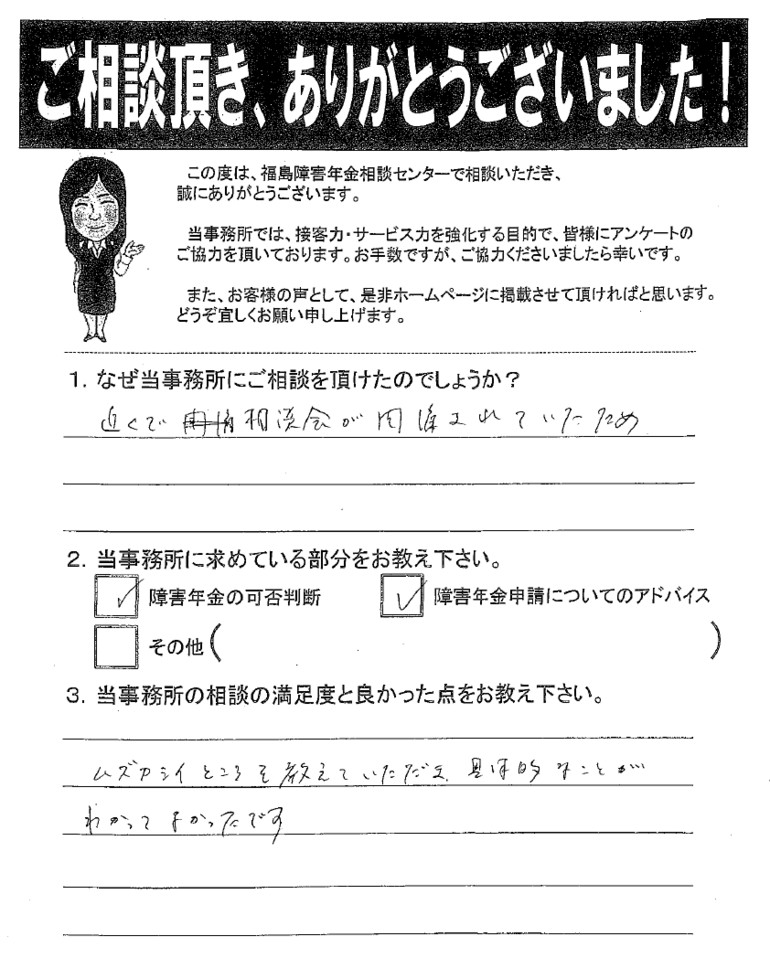 ご相談頂き、ありがとうございました！
この度は、福島障害年金相談センターで相談いただき、
誠にありがとうございます。
当事務所では、接客力・サービス力を強化する目的で、皆様にアンケートの
ご協力を頂いております。お手数ですが、ご協力くださいましたら幸いです。
また、お客様の声として、是非ホームページに掲載させて頂ければと思います。
どうぞ宜しくお願い申し上げます。
1. なぜ当事務所にご相談を頂けたのでしょうか？
近くで 相談会が開催されていたため
2. 当事務所に求めている部分をお教え下さい。
障害年金の可否判断
障害年金申請についてのアドバイス
その他( )
3. 当事務所の相談の満足度と良かった点をお教え下さい。
ムズカシイところを教えていただき、具体的なことが
わかってよかったです